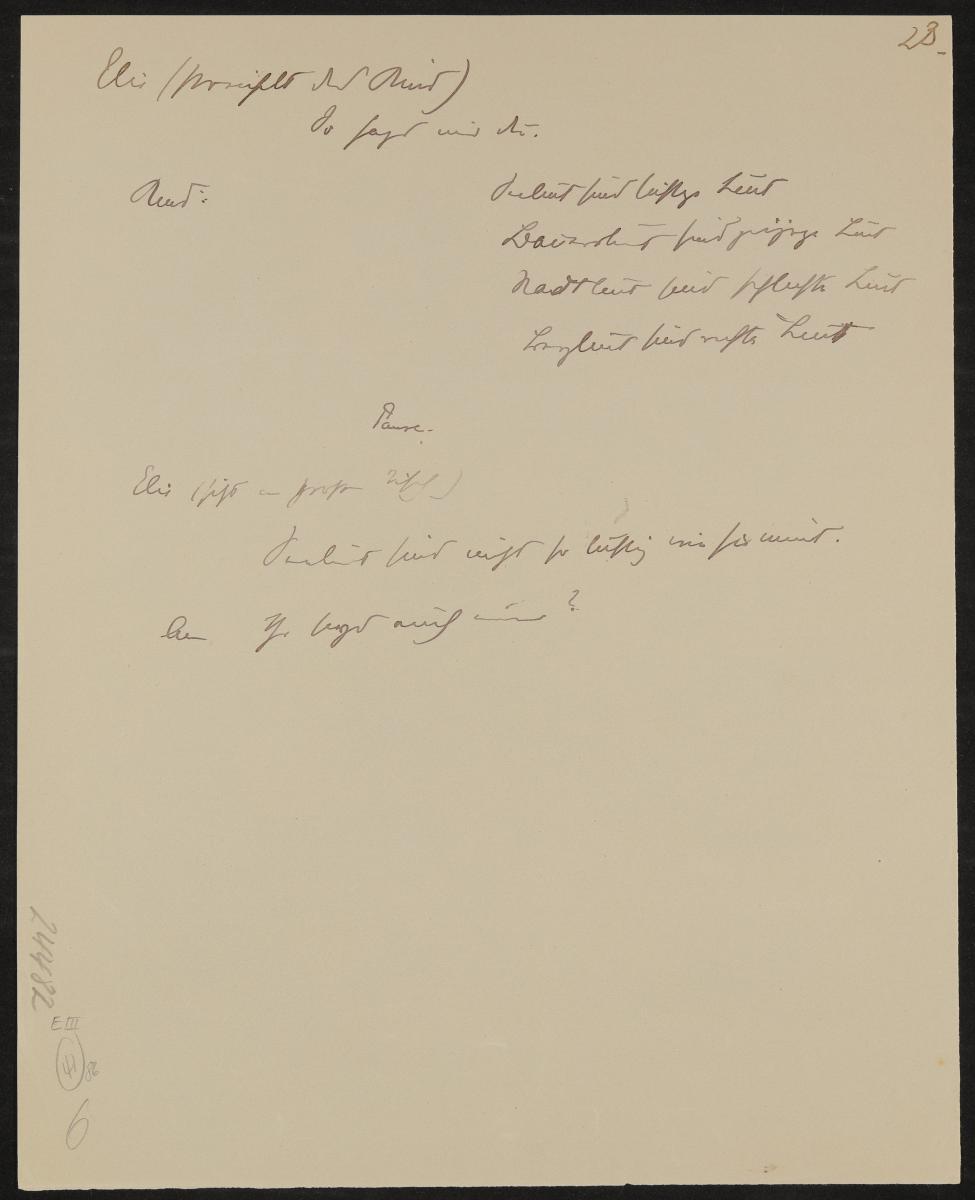 23.
Elis (streichelt das Kind)
So sagt mir du.
Kind: Seeleut sind lustige Leut
Bauersleut sind grissige Leut
Stadtleut sind schlechte Leut
Bergleut sind rechte Leut
Pause.
Elis (sitzt am grossen Tisch)
Seeleut sind nicht so lustig wie sie meint.
Ihr sagt auch nur?
24482
E III
H
86
6